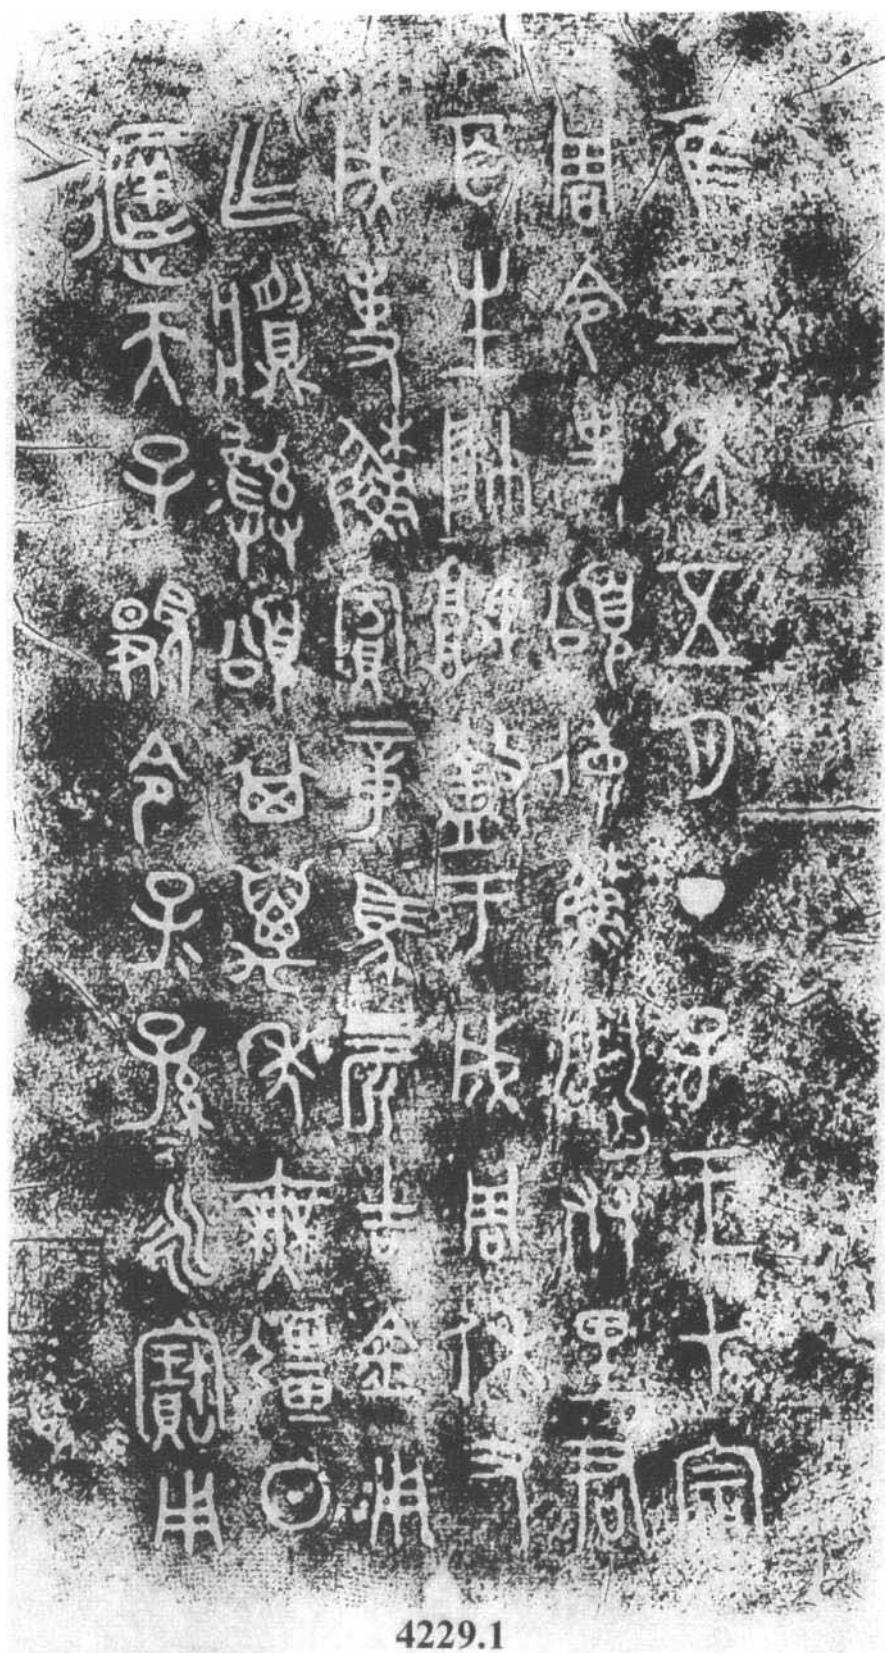 隹三年五月丁子王才宗
周令史頌省穌𤔲友里君
百生帥䚘盩于成周休又
成事穌賓章馬四匹吉金用
乍𩰬彝頌其萬年無疆日
天子顯令子=孫=永寶用
4229.1